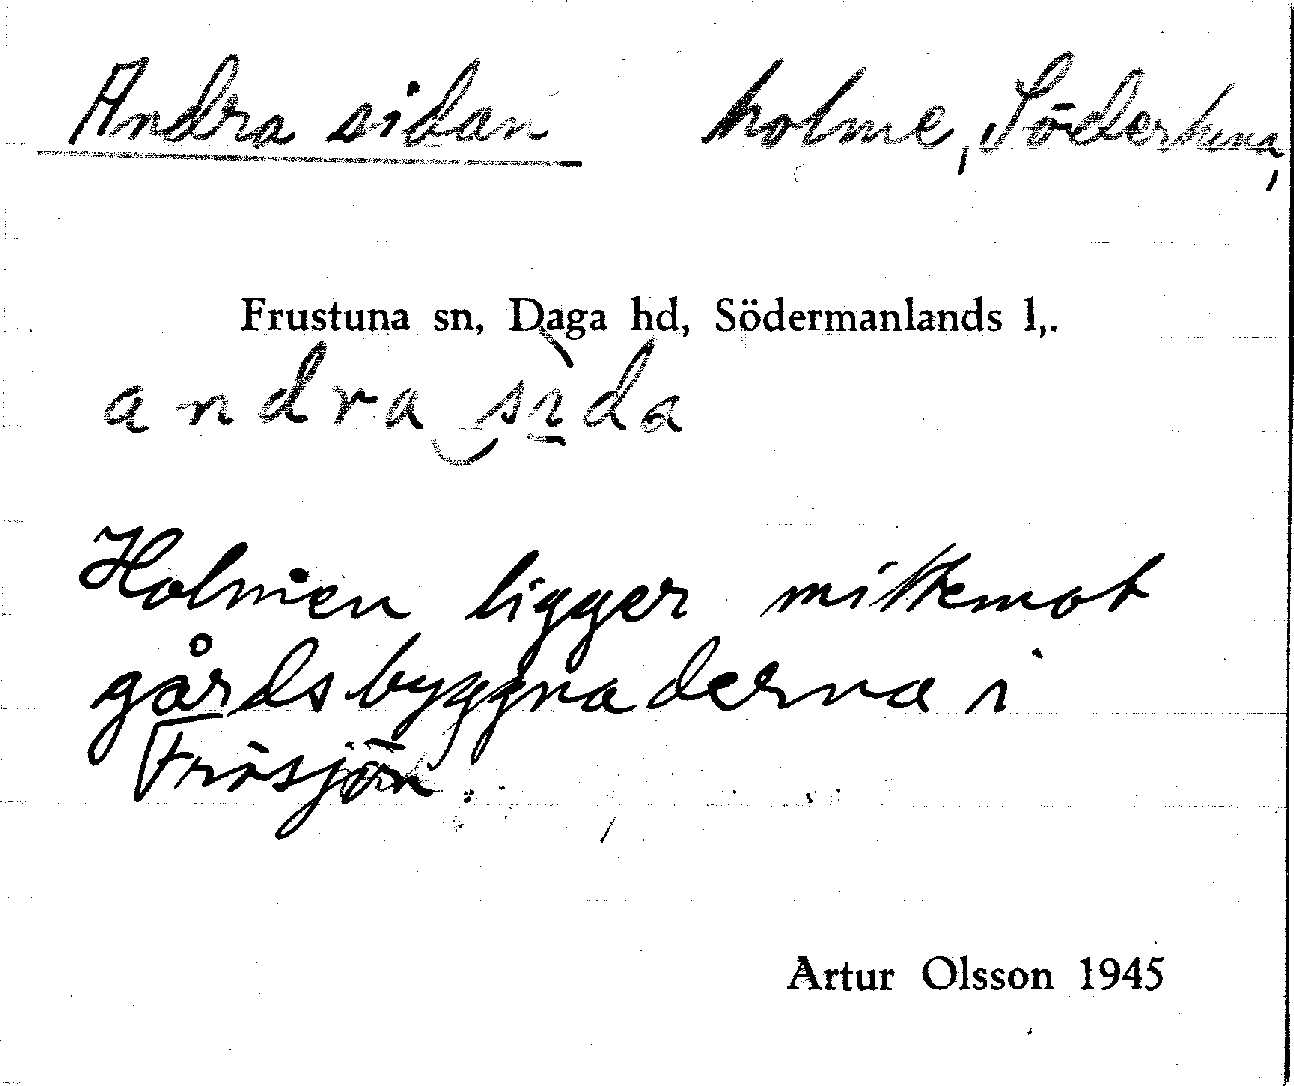 Andra sidan holme, Södertuna,
Frustuna sn, Daga hd, Södermanlands l,.
andra sìda
Holmen ligger mittemot
gårdsbyggnaderna i
Frösjön.
Artur Olsson 1945